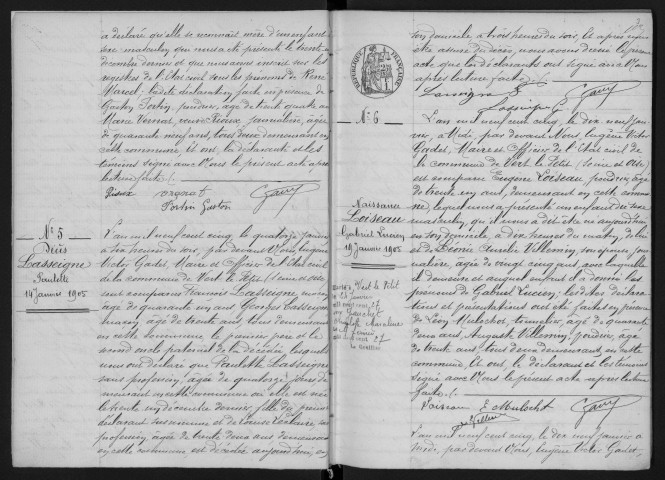 a déclaré qu'elle se reconnait mère d'un enfant
sexe masculin qui nous a été présenté le trente-un
décembre dernier et que nous avons inscrit sur les
registres de l'Etat civil sous les prénoms de René
Marcel; ladite déclaration faite en présence de
Gaston Fortin, poudrier, âgé de trente quatre ans
Marie Vernot, veuve Pieux, journalière, âgée
de quarante neuf ans, tous deux demeurant en
cette commune et ont, la déclarante et les
témoins signé avec Nous le présent acte après
lecture faite./.
Fortin Gaston
N° 5
Décès
Lasseigne
Paulette
14 Janvier 1905
L'an mil neuf cent cinq, le quatorze janvier
à dix heures du soir, par devant Nous, Eugène
Victor Gadet, Maire et Officier de l'état civil
de la commune de Vert le Petit (Seine et Oise)
sont comparus François Lasseigne
âgé de quarante un ans et Georges Lasseigne
âgé de trente ans, tous deux demeurant
en cette commune, le premier père et le
second oncle paternel de la décédée lesquels
nous ont déclaré que Paulette Lasseigne
sans profession, âgée de quatorze jours de
meurant en cette commune où elle est née
le trente un décembre dernier, fille du premier
déclarant susnommé et de Louise
profession, âgée de trente deux ans demeurant
en cette commune, est décédée aujourd'hui, en
son domicile, à trois heures du soir, et après nous
être assuré du décès, nous avons dressé le présent
acte que les déclarants ont signé avec Nous
après lecture faite./.
RÉPUBLIQUE FRANÇAISE
N° 6
Naissance
Loiseau
Gabriel Lucien
19 Janvier 1905
L'an mil neuf cent cinq, le dix neuf Jan-
vier, à Midi, par devant Nous, Eugène Victor
Gadet, Maire et Officier de l'Etat civil de
la commune de Vert le Petit (Seine et Oise)
est comparu Eugène Loiseau, poudrier, âgé
de trente six ans, demeurant en cette commu-
ne, lequel nous a présenté un enfant du sexe
masculin, qu'il nous a dit être né aujourd'hui
en son domicile à dix heures du matin, de lui
et de Léonie Aurélie Villemin, son épouse, jour-
nalière, âgée de vingt cinq ans avec laquelle
il demeure et auquel enfant il donne les
prénoms de Gabriel Lucien; lesdites déclara-
tions et présentations ont été faites en présence
de Léon Mulochot, tonnelier, âgé de quarante
deux ans, Auguste Villemin, poudrier, âgé
de trente ans, tous deux demeurant en cette
commune et ont, le déclarant et les témoins
signé avec Nous le présent acte après lecture
faite./.
Loiseau E Mulochot
L'an mil neuf cent cinq, le dix neuf janvier à
midi, par devant Nous, Eugène Victor Gadet,